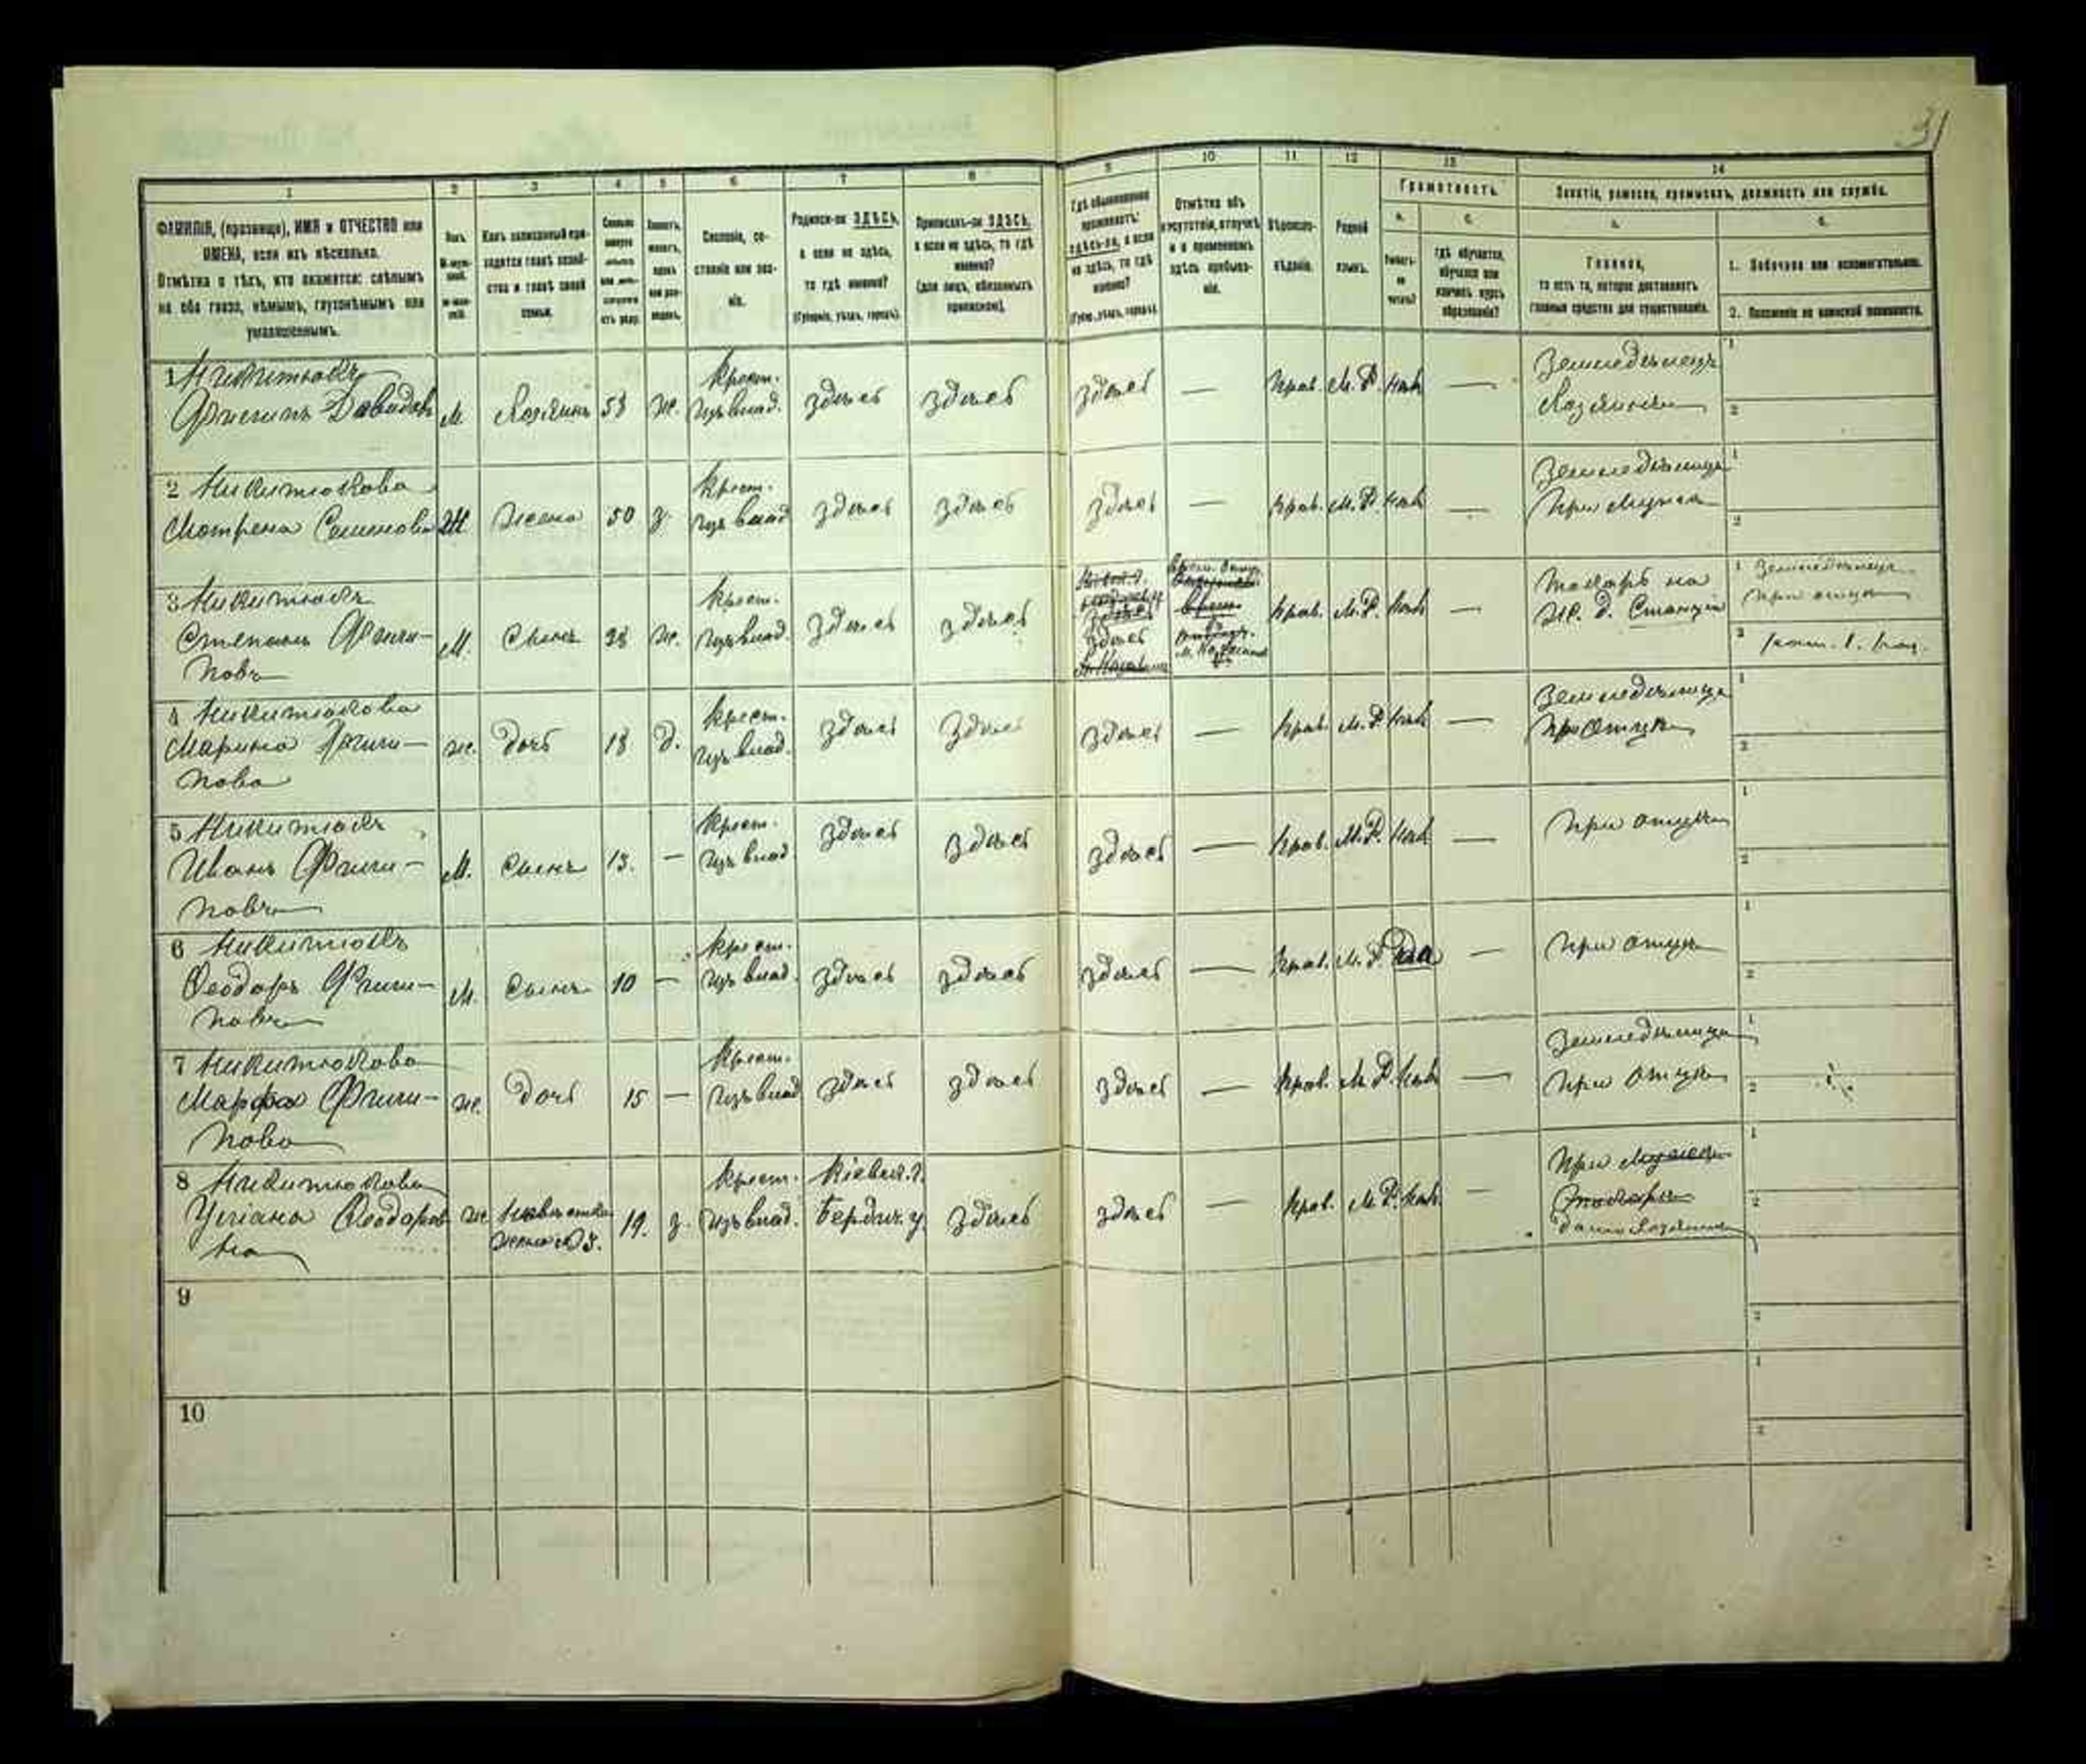 31
1 2 3 4 5 6 7 8 9 10 11 12 13 14
ФАМИЛІЯ, (прозвище), ИМЯ и ОТЧЕСТВО или
ИМЕНА, если ихъ нѣсколько.
Отмѣтка о тѣхъ, кто окажется: слѣпымъ
на оба глаза, нѣмымъ, глухонѣмымъ или
умалишеннымъ.
Полъ
М-муж-
ской.
Ж-жен-
скій.
Какъ записанный при-
ходится главѣ хозяй-
ства и главѣ своей
семьи.
Сколько
Холостъ,
женатъ,
вдовъ
или раз-
веденъ.
Сословіе, со-
стояніе или зва-
ніе.
Родился-ли ЗДѢСЬ,
а если не здѣсь,
то гдѣ именно?
(Губернія, уѣздъ, городъ).
Приписанъ-ли ЗДѢСЬ,
а если не здѣсь, то гдѣ
именно?
(для лицъ, обязанныхъ
припискою).
Гдѣ обыкновенно
проживаетъ:
здѣсь-ли, а если
не здѣсь, то гдѣ
именно?
(Губер., уѣздъ, городъ).
Отмѣтка объ
отсутствіи, отлучкѣ
и о временномъ
здѣсь пребыва-
ніи.
Вѣроиспо-
вѣданіе.
Родной
языкъ.
Грамотность.
а.
Умѣетъ-
ли
читать?
б.
гдѣ обучается,
обучался или
кончилъ курсъ
образованія?
Занятіе, ремесло, промыселъ, должность или служба.
а.
Главное,
то есть то, которое доставляетъ
главныя средства для существованія.
б.
1. Побочное или вспомогательное.
2. Положеніе по воинской повинности.
1 Никитюкъ
Филипъ Давидовъ М. Хозяинъ 58 ж. крест. изъ влад. здѣсь здѣсь здѣсь — прав. М. Р. нѣт — Земледѣлецъ
Хозяинъ
2 Никитюкова
Мотрена Семенова Ж жена 50 з. крест. изъ влад здѣсь здѣсь здѣсь — прав. М. Р. нѣт — Земледѣлица
при мужѣ
3 Никитюкъ
Степанъ Фили-
повъ М. Сынъ ж. крест. изъ влад. здѣсь здѣсь здѣсь прав. М. Р. нѣт — Токарь на
Ж. д. Станціи
1 Земледѣлецъ
при отцѣ
2
4 Никитюкова
Марина Фили-
пова ж. дочь 18 д. крест. изъ влад. здѣсь здѣсь здѣсь — прав. М. Р нѣт — Земледѣлица
при Отцѣ
5 Никитюкъ
Иванъ Фили-
повъ М. Сынъ 13. — крест. изъ влад здѣсь здѣсь здѣсь — прав. М. Р. нѣт — при отцѣ
6 Никитюкъ
Феодоръ Фили-
повъ М. Сынъ 10 — крест. изъ влад. здѣсь здѣсь здѣсь — прав. М. Р да — при отцѣ
7 Никитюкова
Марфа Фили-
пова ж. дочь 15 — крест. изъ влад здѣсь здѣсь здѣсь — прав. М. Р. нѣт — Земледѣлица
при отцѣ
8 Никитюкова
Уліана Феодоров
на ж невѣстка
жена № 3. 19. з. крест. изъ влад. Кіевск. г.
Бердич. у. здѣсь здѣсь — прав. М. Р. нѣт — при мужѣ
9
10